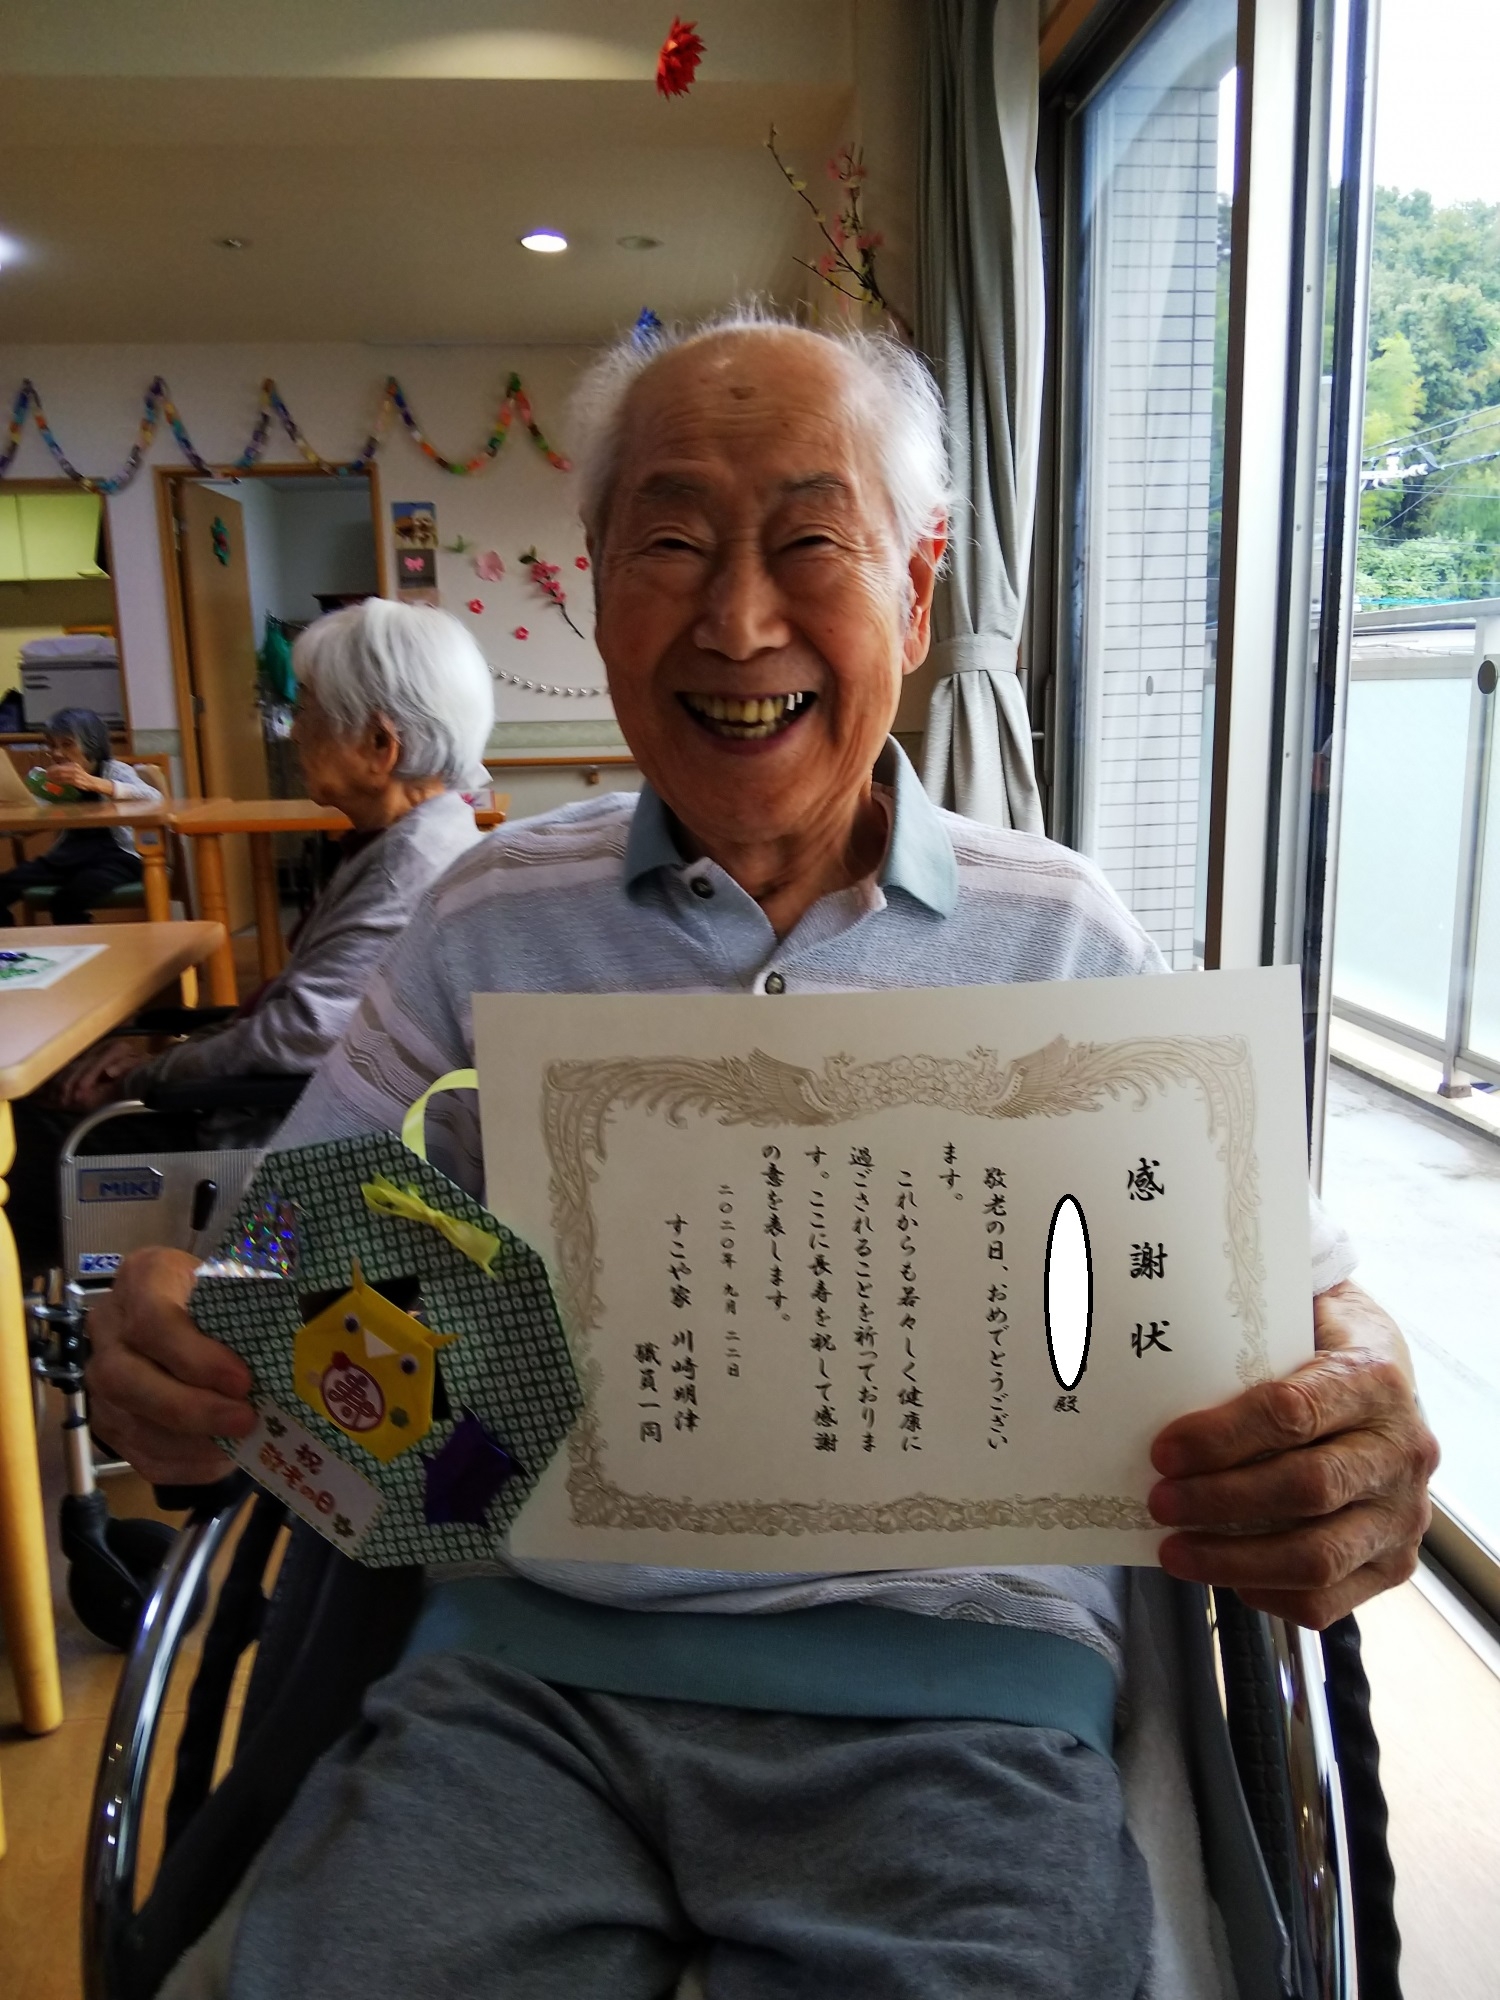 感謝状
殿
敬老の日、おめでとうござい
ます。
これからも若々しく健康に
過ごされることを祈っておりま
す。ここに長寿を祝して感謝
の意を表します。
二〇二〇年 九月 二二日
すこや家 川崎明津
職員一同
寿
祝
敬老の日
MIKI